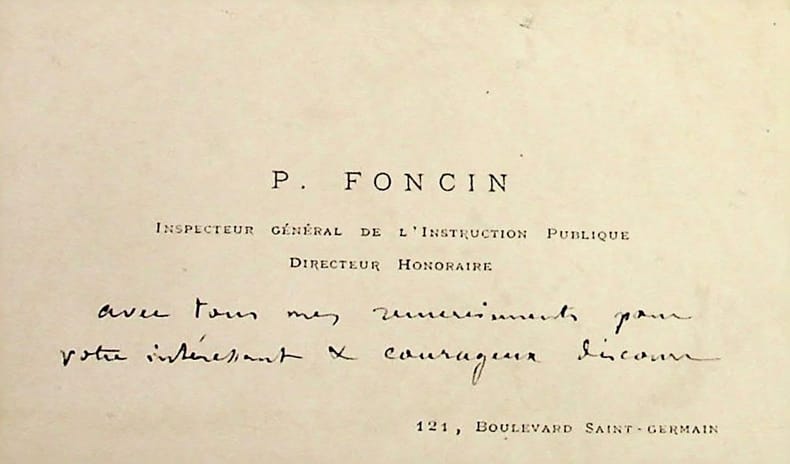 P. FONCIN
INSPECTEUR GÉNÉRAL DE L'INSTRUCTION PUBLIQUE
DIRECTEUR HONORAIRE
avec tous mes remerciements pour
votre intéressant & courageux discours
121, BOULEVARD SAINT-GERMAIN